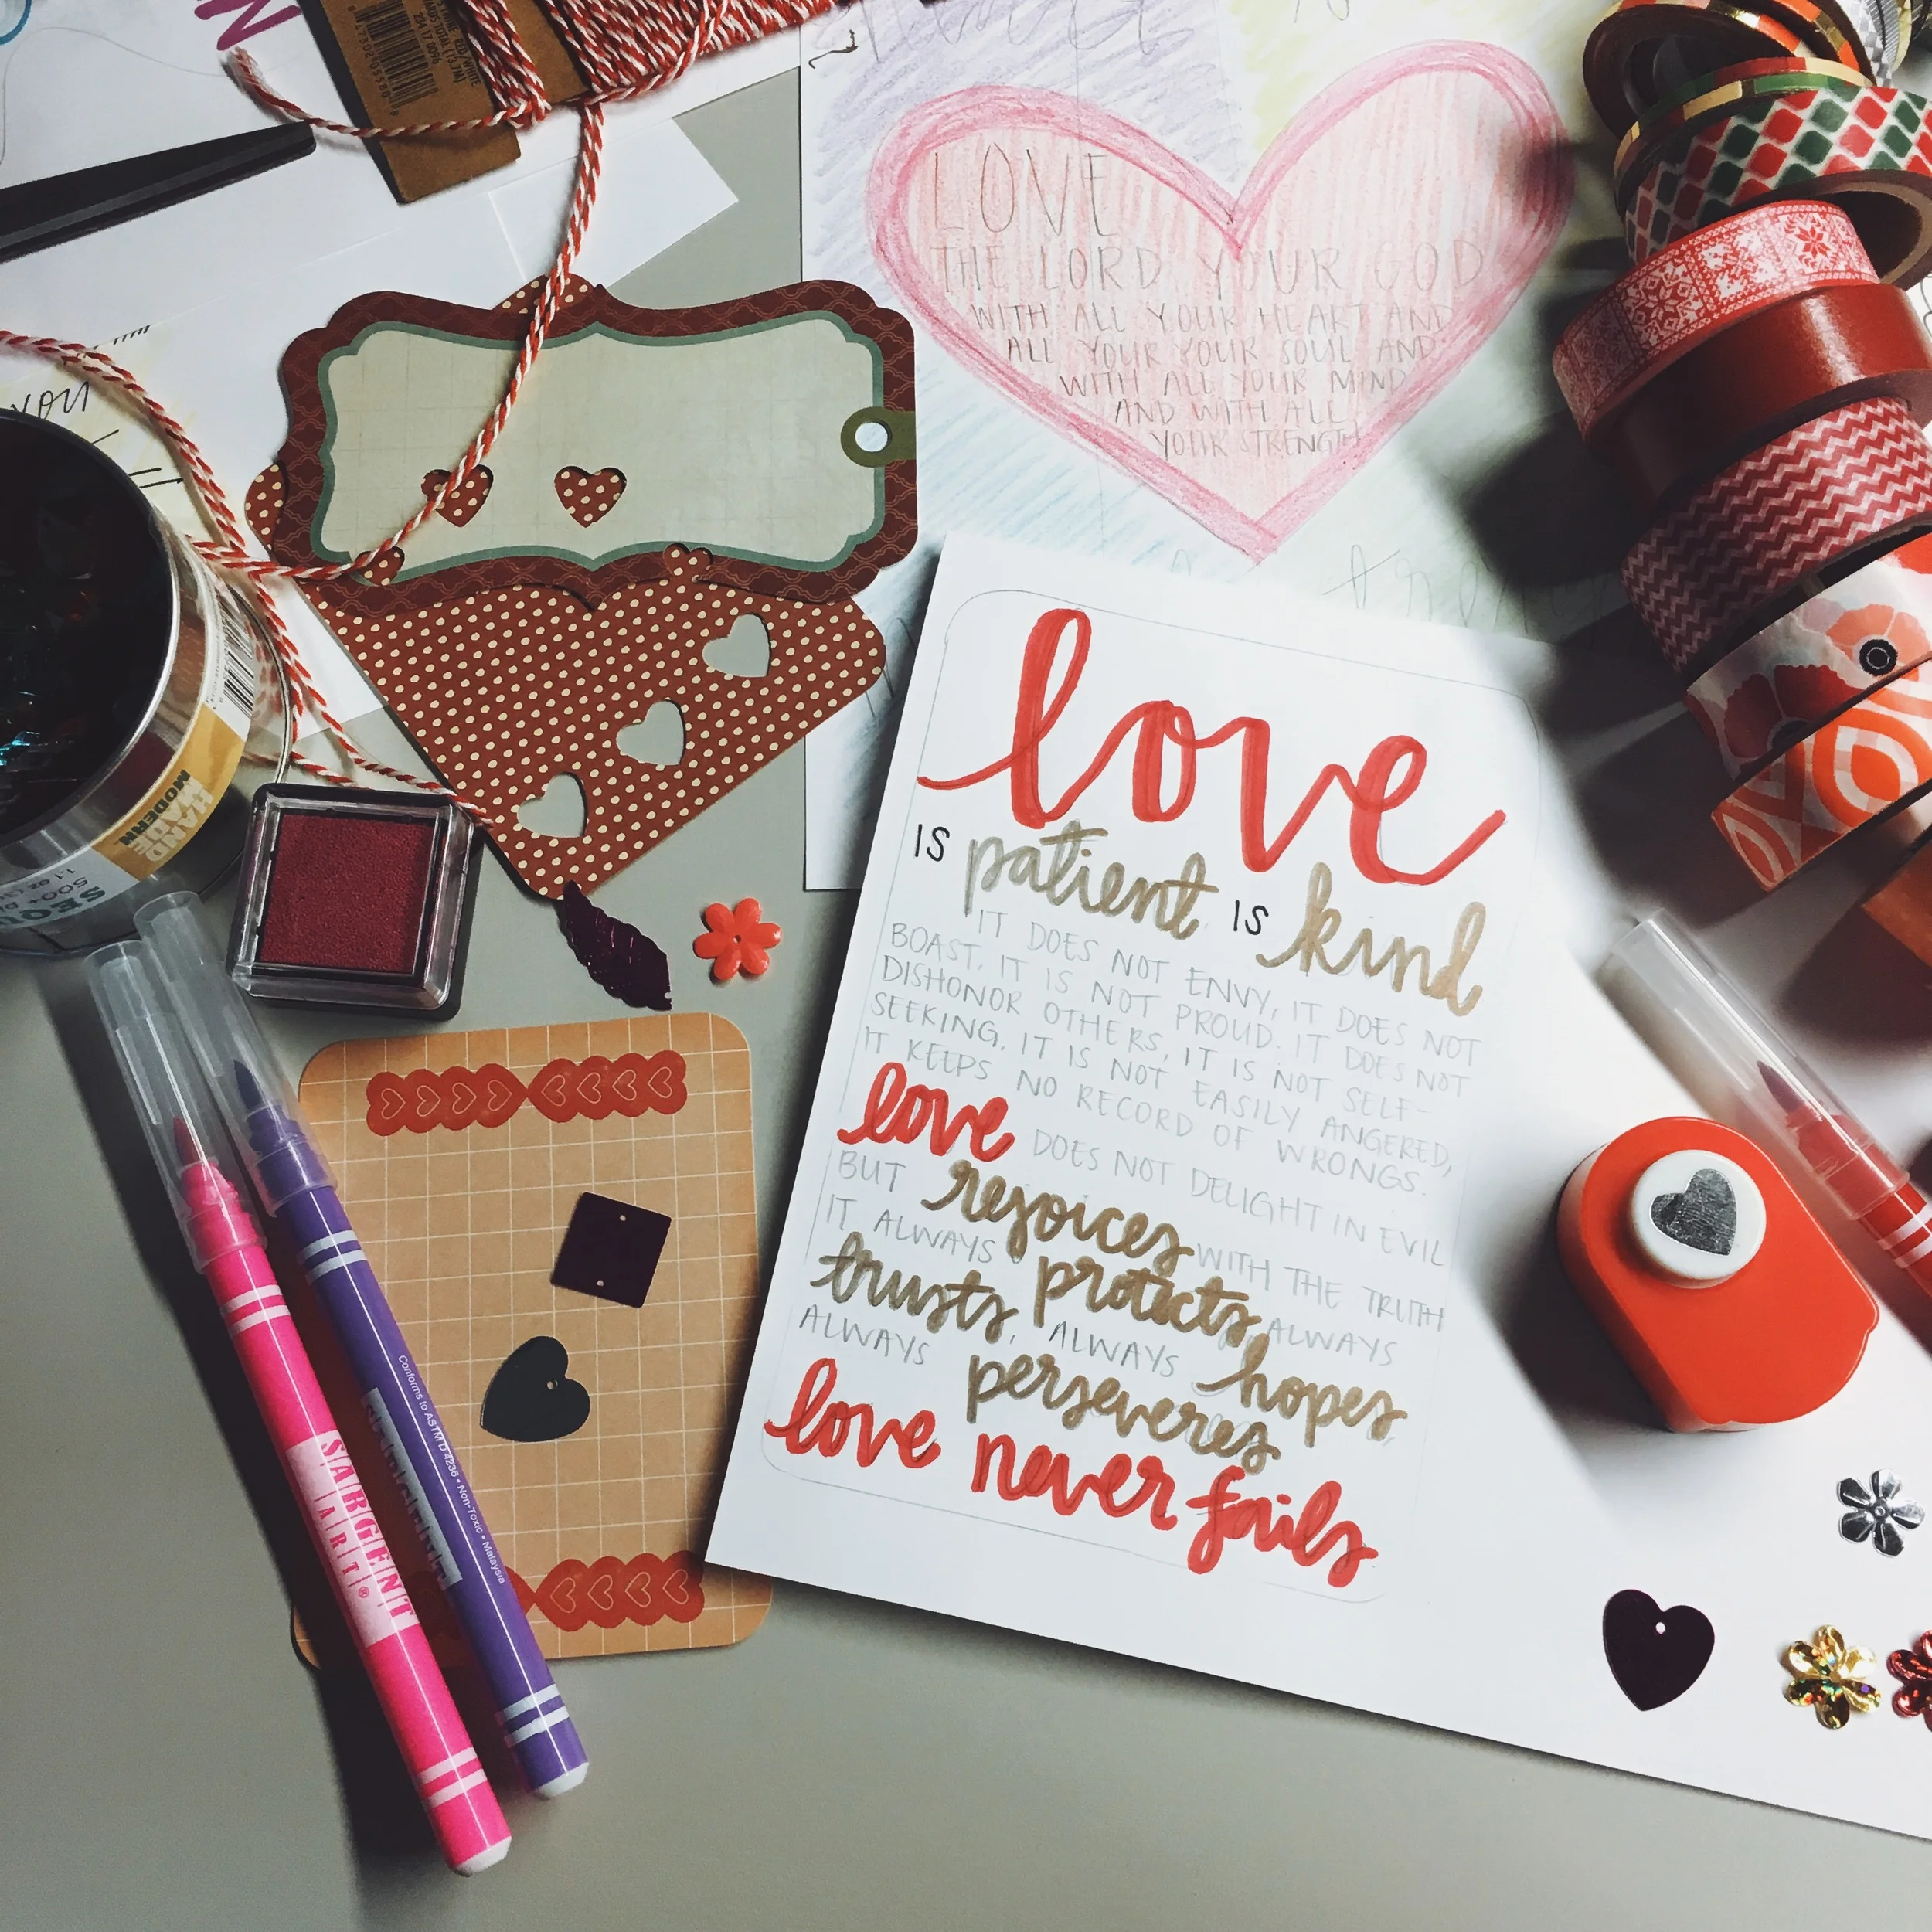 LOVE
THE LORD YOUR GOD
WITH ALL YOUR HEART AND
ALL YOUR YOUR SOUL AND
WITH ALL YOUR MIND
AND WITH ALL
YOUR STRENGTH
you
love
IS patient IS kind
IT DOES NOT ENVY, IT DOES NOT
BOAST, IT IS NOT PROUD. IT DOES NOT
DISHONOR OTHERS, IT IS NOT SELF-
SEEKING, IT IS NOT EASILY ANGERED,
IT KEEPS NO RECORD OF WRONGS.
love DOES NOT DELIGHT IN EVIL
BUT rejoices WITH THE TRUTH
IT ALWAYS protects, ALWAYS
trusts, ALWAYS hopes,
ALWAYS perseveres
love never fails
HAND
MADE
MODERN
SEQU
500+
1.1 OZ
SARGENT
ART®
Conforms to ASTM D 4236 • Non-Toxic • Malaysia